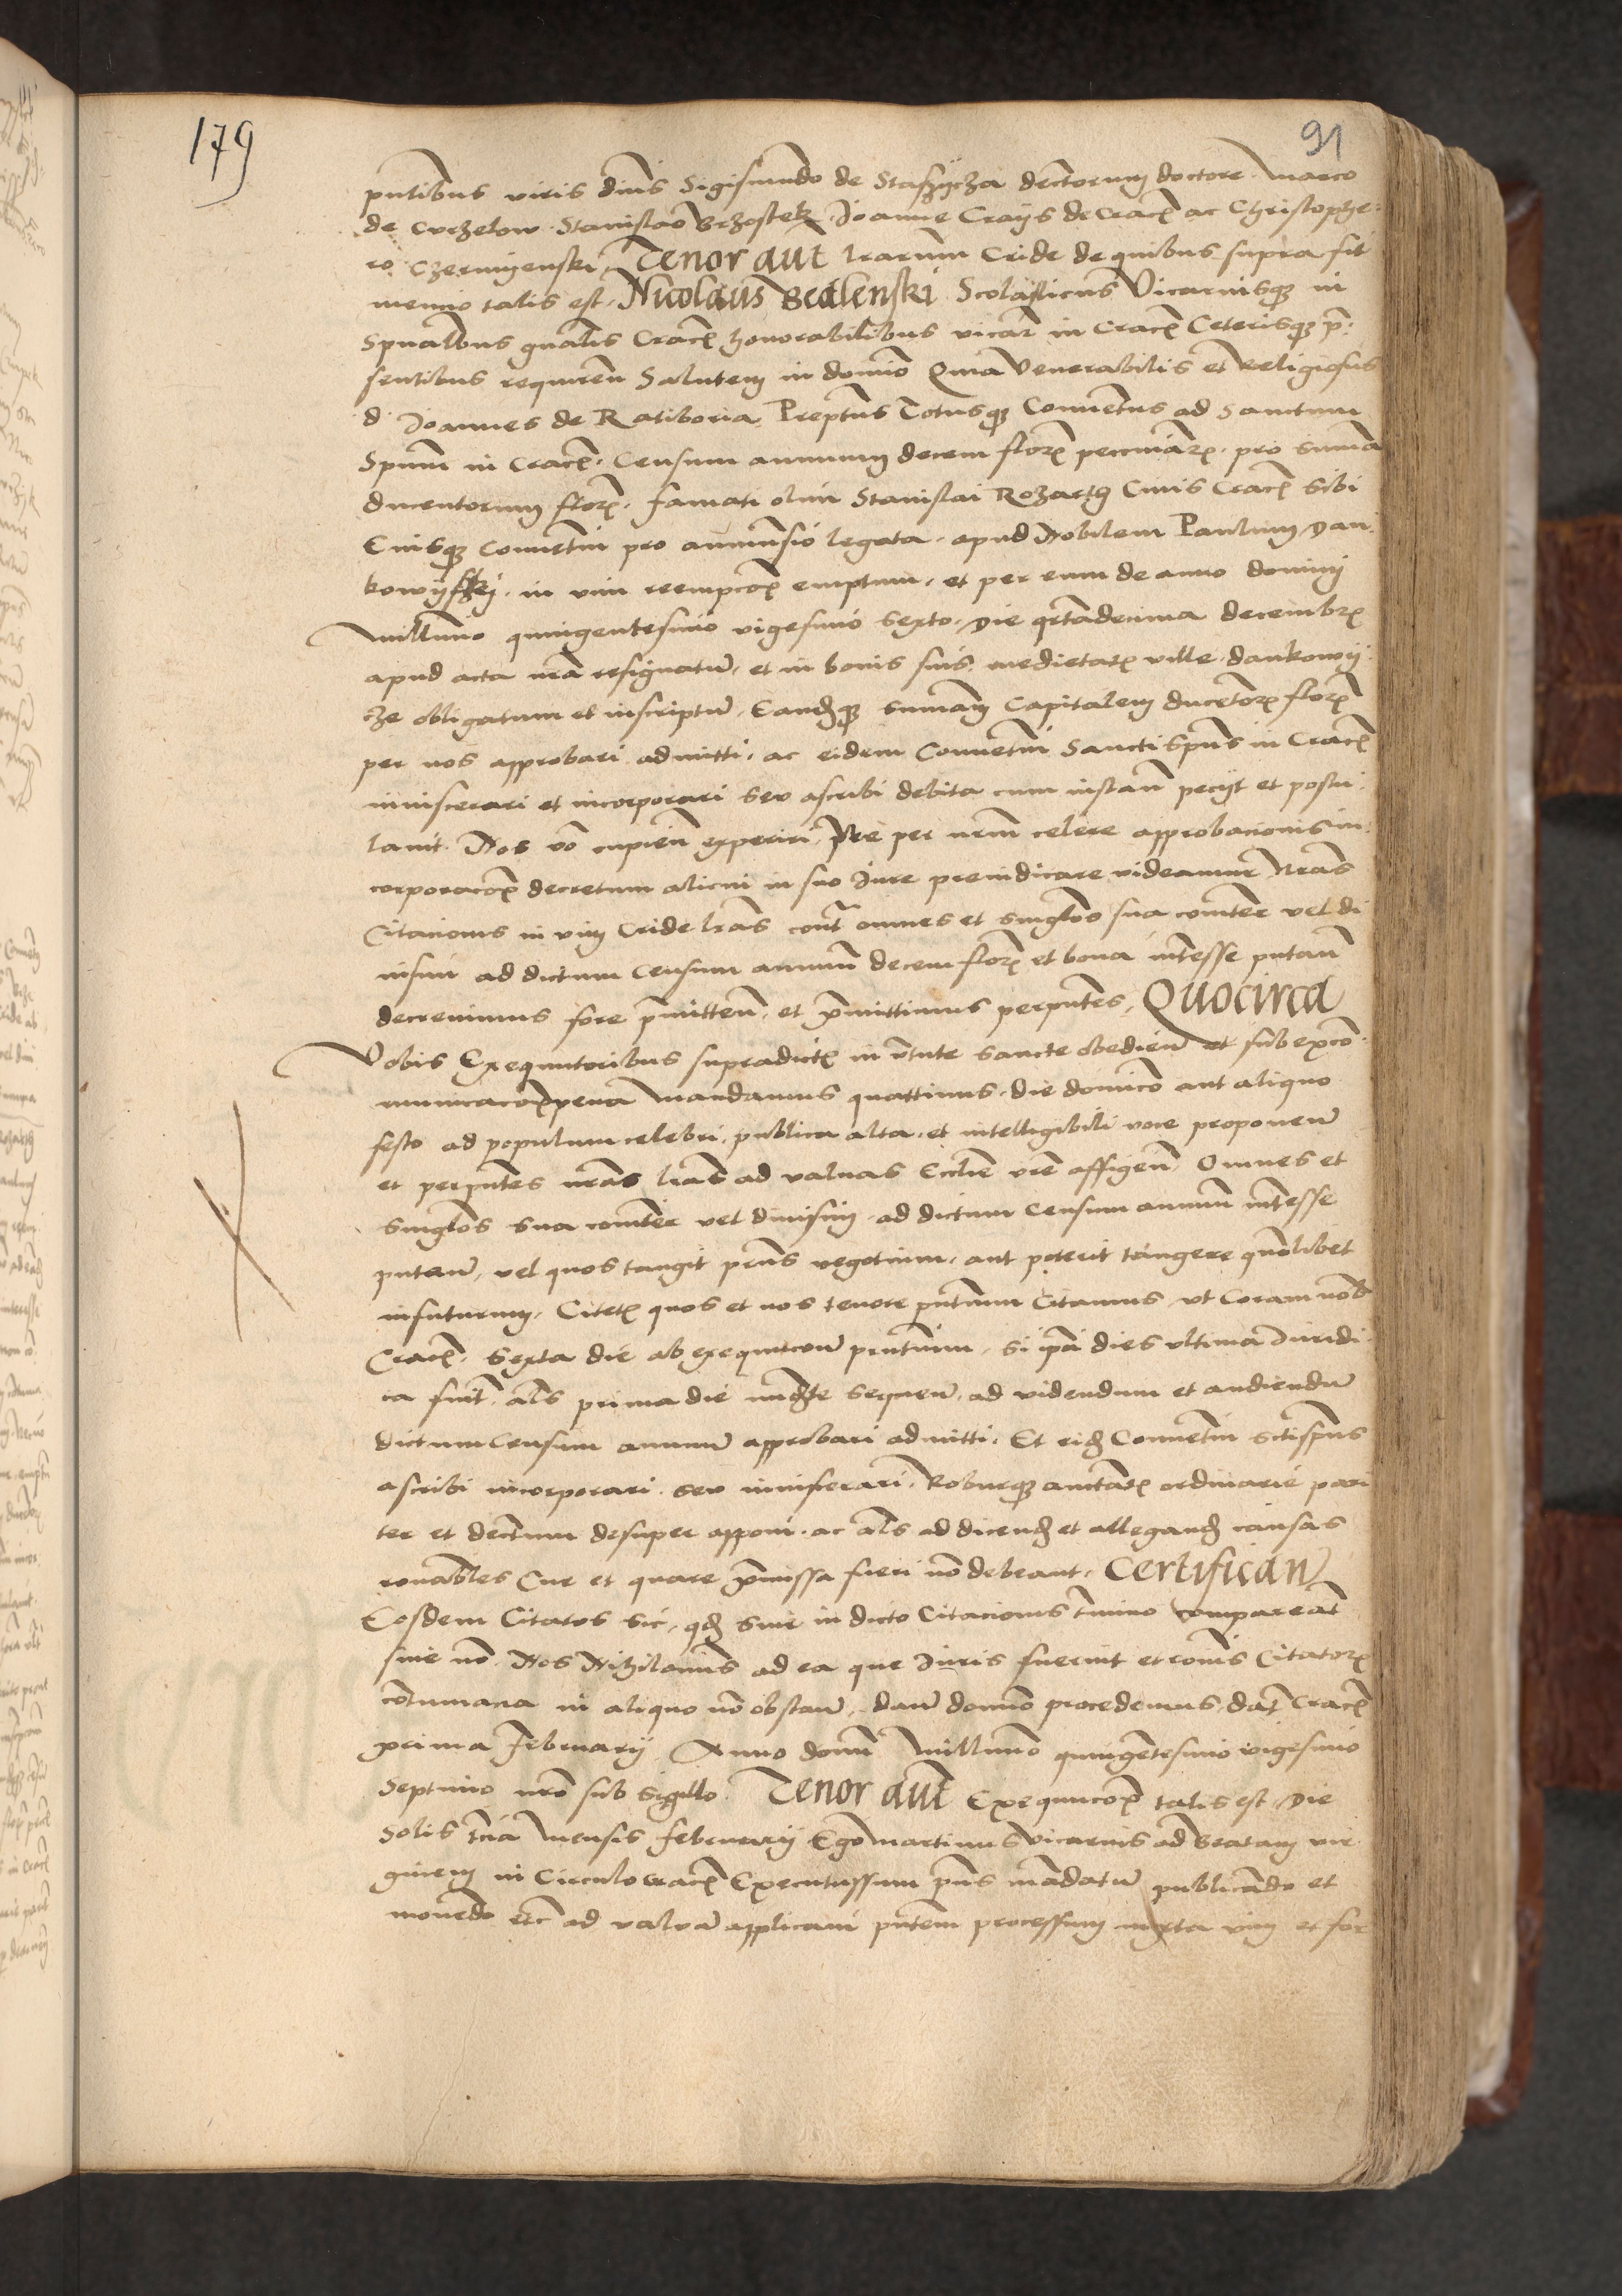 179
91
pntibus viris dnis Sigismundo de Stazycza dectorum doctore Marco
de Curzelow Stanislao Brzostek Joanne Crays de Cracn ac Christophe
ro Czerniyenski Tenor aut lrarum Cride de quibus supra fit
mencio talis est Nicolaus Bedlenski Scolasticus Vicariusq in
Spualbus gnalis Cracn honorabilibus vicar in Cracn Ceterisq p
sentibus requiren Salutem in domino Quia Venerabilis et Religiosus
d Joannes de Ratiboria Preptus Totusq Conuetus ad Sanctum
Spum in Cracn Censum annuum decem floren pecuniar pro suma
ducentorum floren famati olim Stanislai Rozarth Ciuis Cracn sibi
Eiusq Conuetui pro legata apud Nobilem Paulum Dan
kowysky in vim reempcon emptum et per eum de anno domini
millimo quingentesimo vigesimo sexto die qrtadecima decembr
apud acta nra resignatu et in bonis suis medietat ville dankowy
cze obligatum et inscriptu Eandq sumam Capitalem ducetor floren
per nos approbari admitti ac eidem Conuetui Sancti Spus in Cracn
inuiscerari et incorporari seu ascribi debita cum instan pecijt et postu
lauit Nos vo cupien experiri Ne per nrm celere approbacionis in
corporacon decretum alicui in suo Jure preiudicare videamur Nras
Citacionis in vim Cride lras cont omnes et singlos sua comiter vel di
uisim ad dictum Censum annuum decem floren et bona intesse putan
decreuimus fore pmitten et pmittimus perpntes Quocirca
Vobis Exequutoribus supradict in vtute sancte obedien et sub exco
municacon pena mandamus quattinus die dominco aut aliquo
festo ad populum celebri publica alta et intelligibili voce proponen
et perpntes nras lras ad valuas Ecclie vre affigen Omnes et
singlos sua comiter vel diuisim ad dictum Censum annuum intesse
putan vel quos tangit pns negotium aut poterit tangere qmolibet
infuturum Citetis quos et nos tenore pntium Citamus vt Coram nob
Cracn Sexta die ab exequucon pntium si ipa dies vltima Juridi
ca fuit als prima die immdte sequen ad videndum et audiendu
dictum Censum annuum approbari admitti Et eid Conuetui scti spus
ascribi incorporari seu inuiscerari Roburq auctatis ordinarie pari
ter et dectum desuper apponi ac als ad dicend et allegand causas
ronabiles Cur et quare pmissa fieri no debeant Certifican
Eosdem Citatos sic qd siue in dicto Citacionis tmino compareat
siue no Nos Nihilominus ad ea que Juris fuerint et ronis Citator
cotumacia in aliquo no obstan dan domino procedemus dat Cracn
prima februarij Anno domi millimo quingetesimo vigesimo
Septimo nro sub sigillo Tenor aut Exequucon talis est Die
Solis tcia mensis februarij Ego Martinus vicarius ad Beatam vir
ginem in Circulo Cracn Executus sum pns madatu publicado et
monedo etc ad valua applicaui pntem processum iuxta vim et for